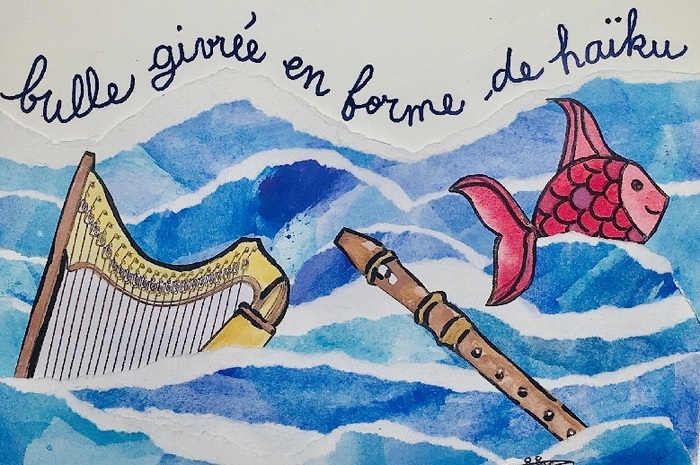 bulle givrée en forme de haïku